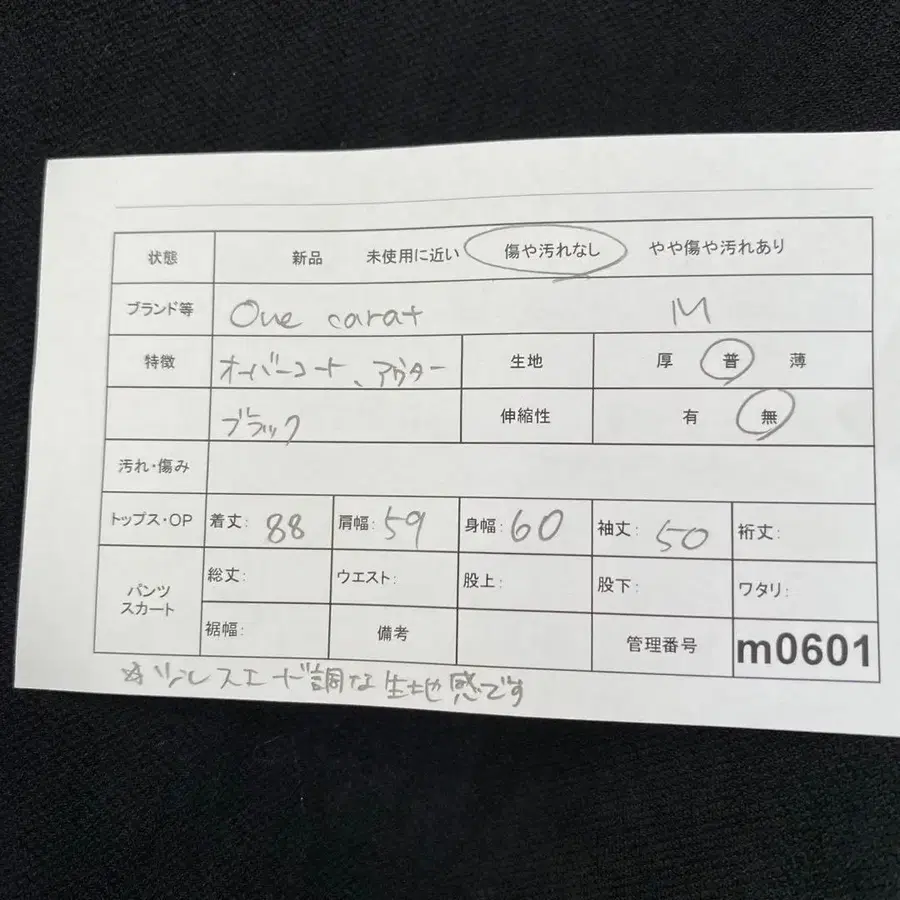 状態 新品 未使用に近い 傷や汚れなし やや傷や汚れあり
ブランド等 One carat M
特徴 オーバーコート、アウター 生地 厚 普 薄
ブラック 伸縮性 有 無
汚れ・傷み
トップス・OP 着丈: 88 肩幅: 59 身幅: 60 袖丈: 50 裄丈:
パンツ スカート 総丈: ウエスト: 股上: 股下: ワタリ:
裾幅: 備考 管理番号 m0601
スエード調な生地感です